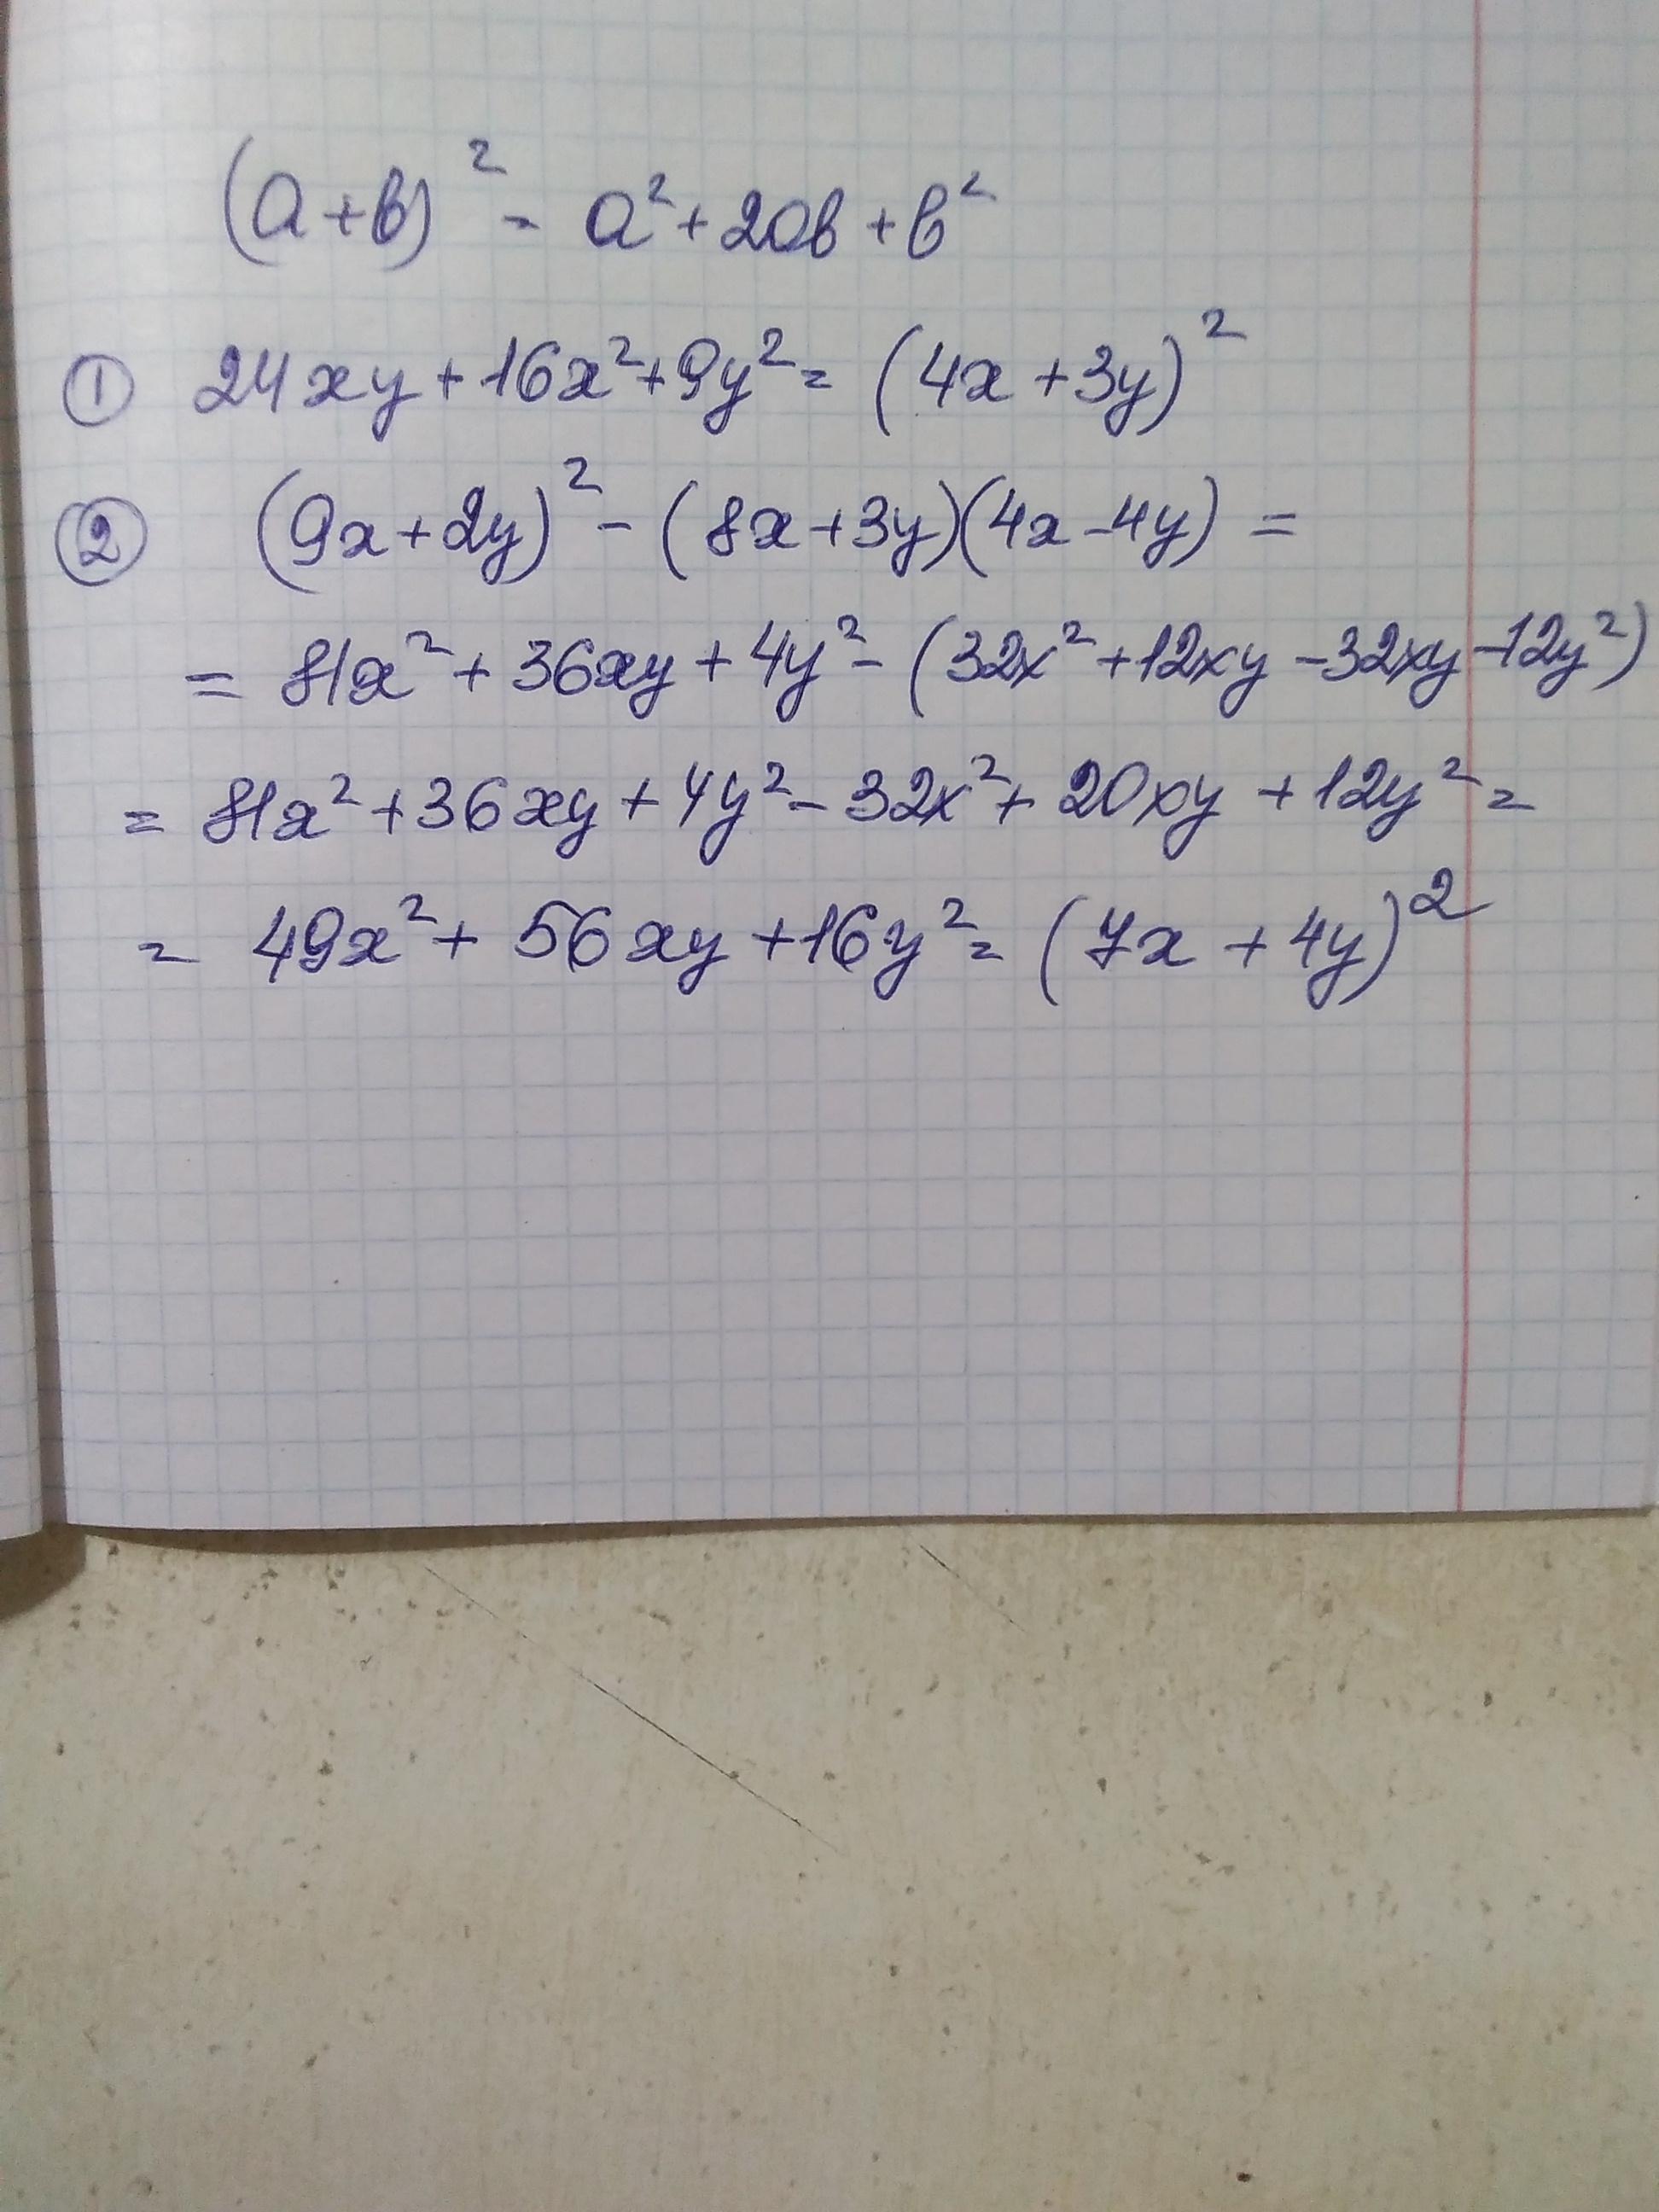 (a+b)² = a²+2ab+b²
① 24xy+16x²+9y² = (4x+3y)²
② (9x+2y)² - (8x+3y)(4x-4y) =
= 81x²+36xy+4y²-(32x²+12xy-32xy-12y²)
= 81x²+36xy+4y²-32x²+20xy+12y² =
= 49x²+56xy+16y² = (7x+4y)²